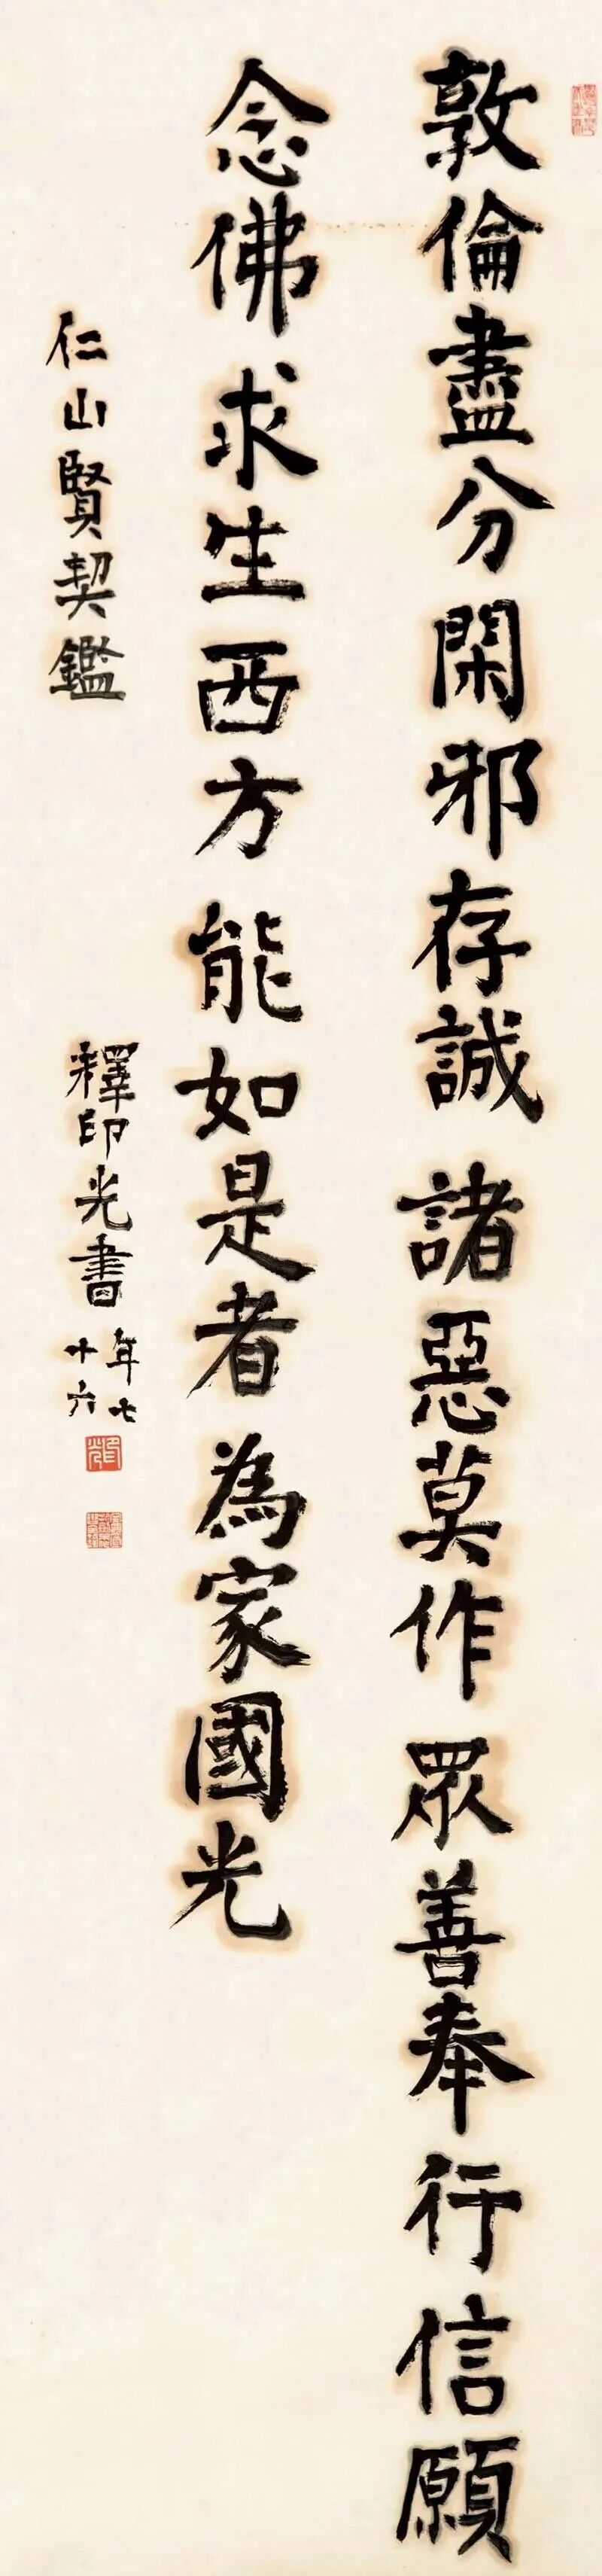 敦倫盡分閑邪存誠諸惡莫作眾善奉行信願
念佛求生西方能如是者為家國光
仁山賢契鑑
釋印光書
年七
十六